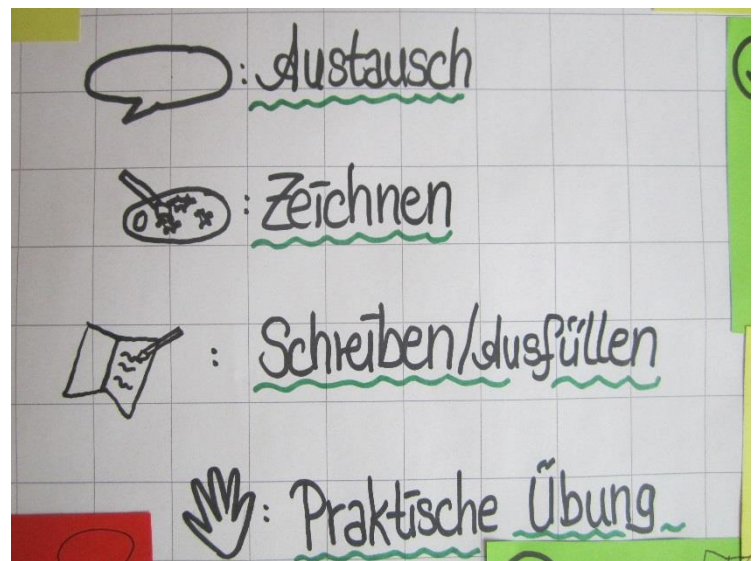 : Austausch
: Zeichnen
: Schreiben/Ausfüllen
: Praktische Übung